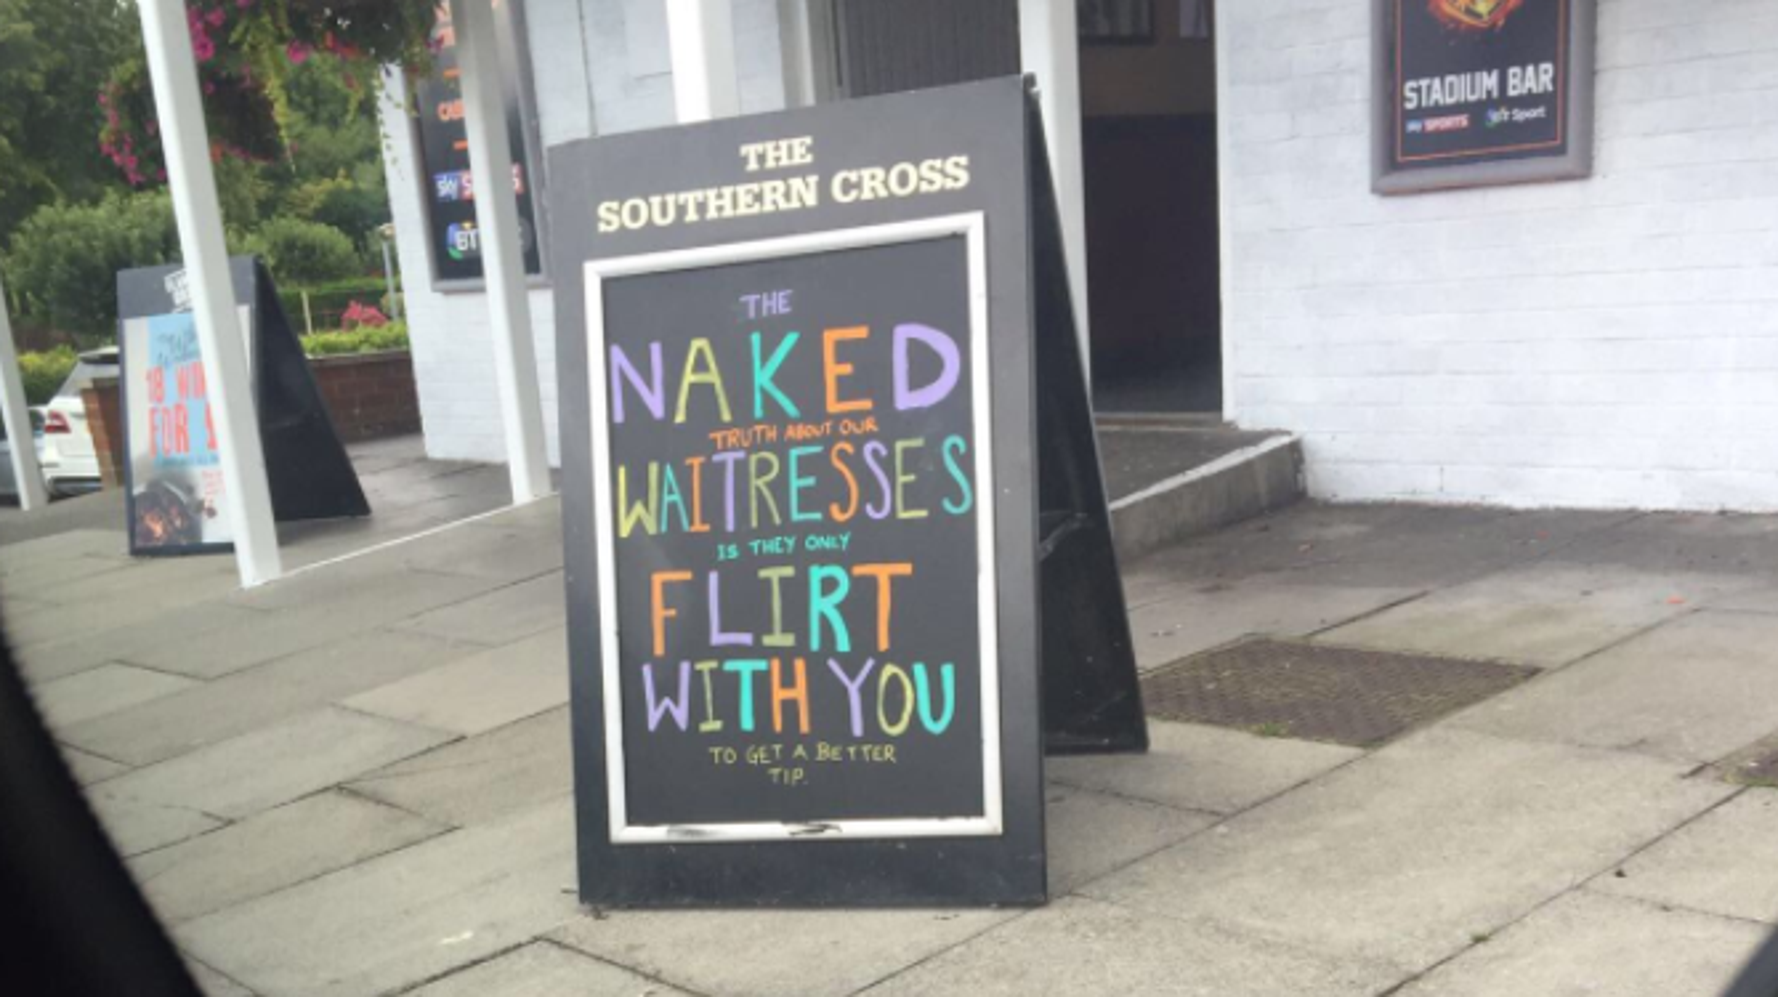 THE
SOUTHERN CROSS
THE
NAKED
TRUTH ABOUT OUR
WAITRESSES
IS THEY ONLY
FLIRT
WITH YOU
TO GET A BETTER
TIP.
STADIUM BAR
sky SPORTS
BT Sport
sky
BT
18
FOR